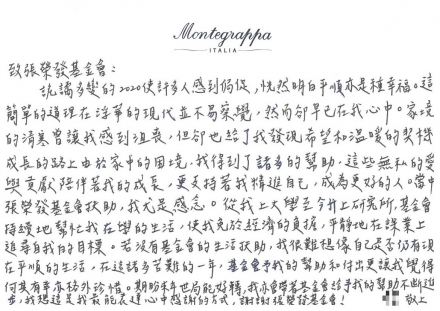 Montegrappa
ITALIA
致張榮發基金會：
詭譎多變的2020使許多人感到侷促，恍然明白平順亦是種幸福。這
簡單的道理在浮華的現代並不易察覺，然而卻早已在我心中。家境
的清寒曾讓我感到沮喪，但卻也給了我發現希望和溫暖的契機
成長的路上由於家中的困境，我得到了諸多的幫助，這些無私的愛
與貢獻陪伴著我的成長，更支持著我精進自己，成為更好的人。當中
張榮發基金會扶助，我尤是感念。從我上大學至今升上研究所，基金會
持續地幫忙我在學的生活，使我免於經濟的負擔，平靜地在課業上
追尋自我的目標。若沒有基金會的生活扶助，我很難想像自己是否仍有現
在平順的生活，在這諸多苦難的一年，基金會予我的幫助和付出更讓我覺得
何其有幸亦格外珍惜。期盼來年世局能好轉，我亦會帶著基金會給予我的幫助不斷進
步，我想這是我最能表達心中感謝的方式，謝謝張榮發基金會！ 敬上